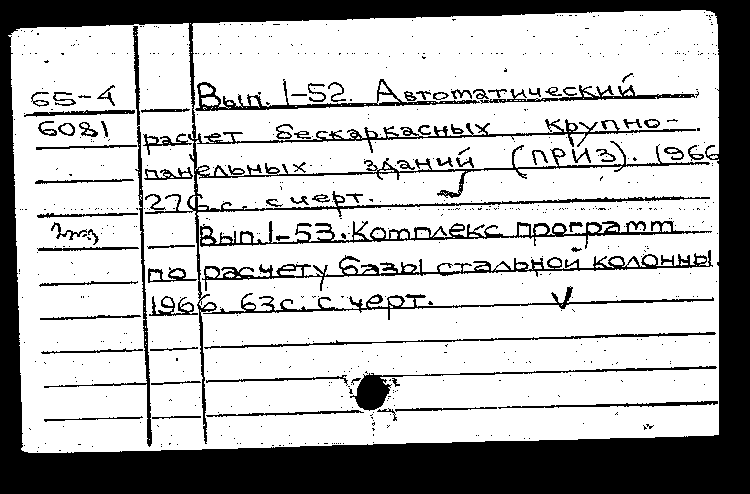 65-4 Вып. 1-52. Автоматический
6081 расчет бескаркасных крупно-
панельных зданий (ПРИЗ). 1966
276 с. с черт.
Вып. 1-53. Комплекс программ
по расчету базы стальной колонны.
1966. 63 с. с черт.